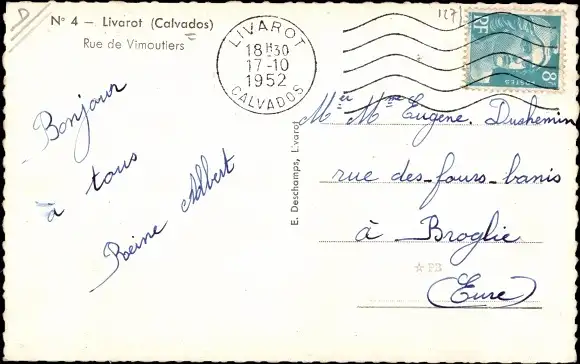 D
N° 4 — Livarot (Calvados)
Rue de Vimoutiers
LIVAROT
18H30
17-10
1952
CALVADOS
127
RF
8F
POSTES
Bonjour
à tous
Reine Albert
E. Deschamps, Livarot
Mer Mme Eugène. Duchemin
rue des-fours-banis
à Broglie
☆ PB
(Eure)